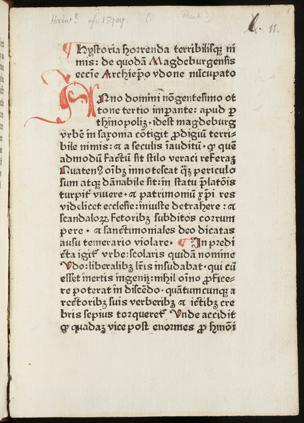 ¶ Hystoria horrenda terribilisqꝫ ni
mis: de quodā Magdeburgensis
eccīe Archiepo vdone nūcupato
Anno domini nōgentesimo ot
tone tertio impante: apud p
thinopolizꝫ idest magdeburg
vrbē in saxoma cōtigit ꝓdigiū terri-
bile nimis: a seculis iāuditū. ꝙ que
admodū factū sit stilo veraci referaꝫ
quaten⁹ oībꝫ innotescat qꝫ periculo
sum atqꝫ dānabile sit: in statu platōīs
turpit̄ viuere. ⁊ patrimoniū xp̄i res
videlicet ecclesie: iniuste detrahere: ⁊
scandalozꝝ fetoribꝫ subditos corrum
pere. ⁊ sanctimoniales deo dicatas
ausu temerario violare. ¶ In predi
cta igit̄ vrbe: scolaris quidā nomine
Udo: liberalibꝫ lr̄is insudabat. qui cū
esset inertis ingenij: nihil oīno ꝓfice-
re poterat in discēdo. quātumcunqꝫ a
rectoribꝫ suis verberibꝫ ⁊ ictibꝫ cre
bris sepius torqueret̄. Unde accidit
ꝙ quadaꝫ vice post enormes
11.